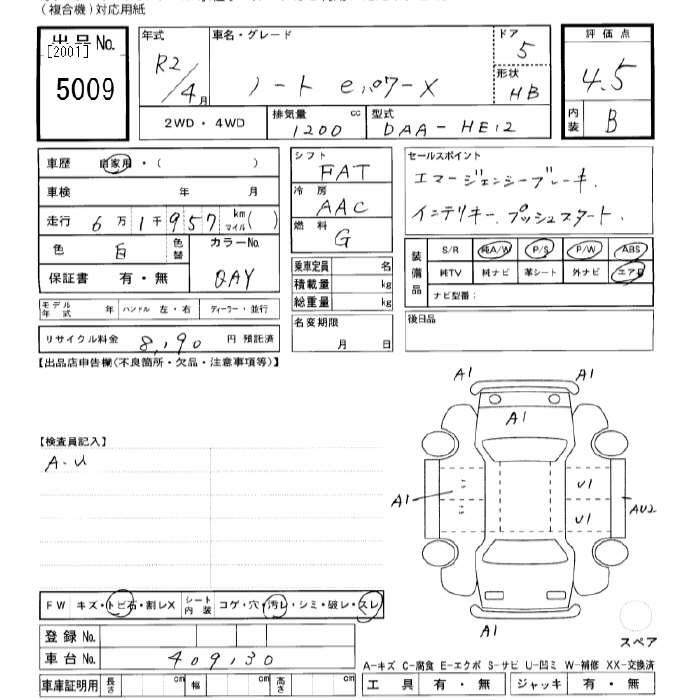 (複合機)対応用紙
出品 No.
[2001]
5009
年式 R2/4月
車名・グレード ノート e.パワーX
ドア 5
形状 HB
2WD・4WD
排気量 1200 cc
型式 DAA-HE12
評価点
4.5
内装 B
車歴 自家用・( )
車検 年 月
走行 6万1千957 km マイル( )
色 白 色替
カラーNo. QAY
保証書 有・無
モデル年式 年 ハンドル 左・右 ディーラー・並行
リサイクル料金 8,190 円 預託済
シフト FAT
冷房 AAC
燃料 G
乗車定員 名
積載量 kg
総重量 kg
名変期限
月 日
セールスポイント
エマージェンシーブレーキ.
インテリキー.プッシュスタート.
装備品 S/R 純A/W P/S P/W ABS
純TV 純ナビ 革シート 外ナビ エアB
ナビ型番:
後日品
【出品店申告欄(不良箇所・欠品・注意事項等)】
【検査員記入】
A-U
A1
A1
A1
A1
U1
U1
AU2
A1
スペア
FW キズ・トビ石・割レX シート内装 コゲ・穴・汚レ・シミ・破レ・スレ
登録 No.
車台 No. 409130
車庫証明用 長さ cm 幅 cm 高さ cm
A-キズ C-腐食 E-エクボ S-サビ U-凹ミ W-補修 XX-交換済
工具 有・無 ジャッキ 有・無